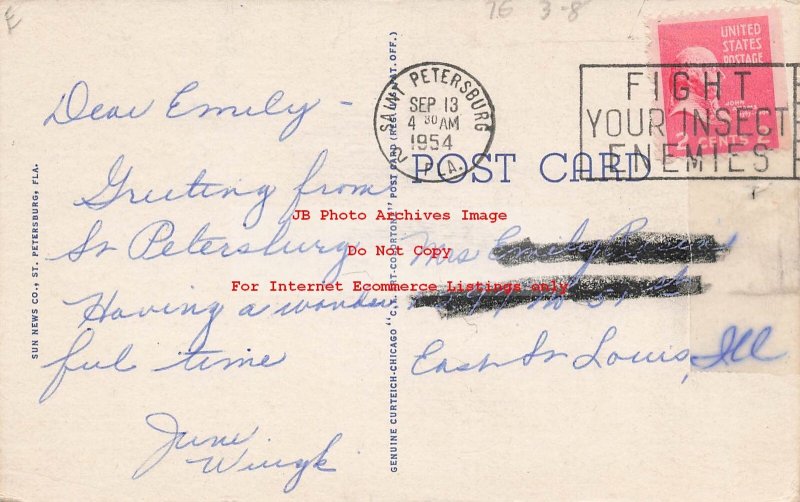 76 3-8
UNITED
STATES
POSTAGE
2 CENTS 2
SAINT PETERSBURG
FLA.
SEP 13
4 30 AM
1954
FIGHT
YOUR INSECT
ENEMIES
POST CARD
Dear Emily -
Greeting from
St Petersburg
Having a wonder
ful time
June
Mrs Emily
51 st
East St Louis, Ill
SUN NEWS CO., ST. PETERSBURG, FLA.
GENUINE CURTEICH-CHICAGO "C.T. ART-COLORTONE" POST CARD (REG. U.S. PAT. OFF.)
JB Photo Archives Image
Do Not Copy
For Internet Ecommerce Listings only